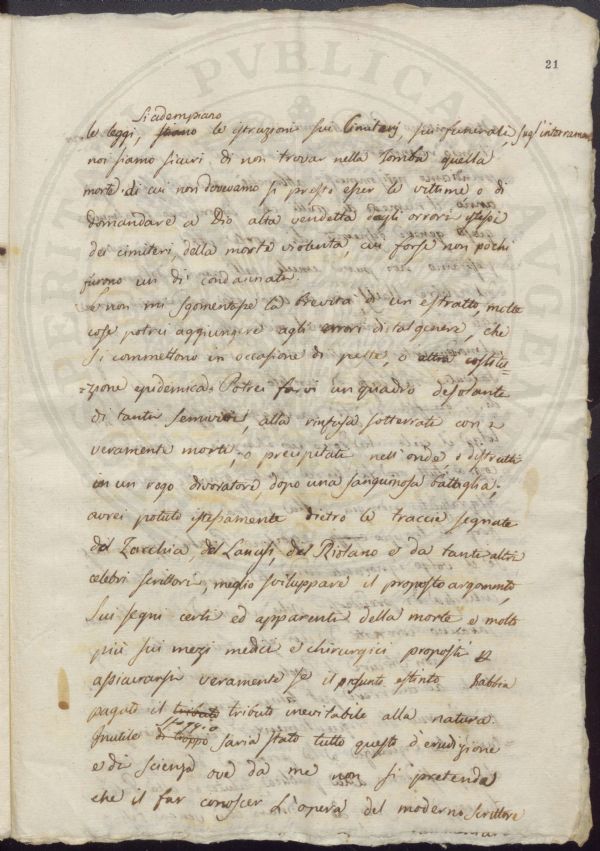 21
Si adempiano
le leggi, siano le istruzioni sui Cimiterj sui funerali, sugl'interramen
noi siamo sicuri di non trovar nella tomba quella
morte di cui non dovevamo sì presto esser le vittime o di
domandare a Dio alta vendetta degli orrori istessi
dei cimiteri, della morte violenta, cui forse non pochi
furono un dì condannati.
e non mi sgomentasse la brevità d'un estratto, molte
cose potrei aggiungere agli errori di tal genere, che
si commettono in occasione di peste, o altra costitu=
=zione epidemica. Potrei farvi un quadro desolante
di tanti semivivi, alla rinfusa sotterrati con i
veramente morti, o precipitati nell'onde, o distrutti
in un rogo divoratore, dopo una sanguinosa battaglia,
avrei potuto istessamente dietro le traccie segnate
del Zacchia, del Lancisi, del Riolano e da tanti altri
celebri scrittori, meglio sviluppare il proposto argomento,
sui segni certi ed apparenti della morte e molto
più sui mezi medici e chirurgici proposti
assicurarsi veramente se il presunto estinto habbia
pagato il tributo tributo inevitabile alla natura.
sfoggio
Inutile di troppo saria stato tutto questo d'erudizione
e di scienza ove da me non si pretenda
che il far conoscer l'opera del moderno scrittore